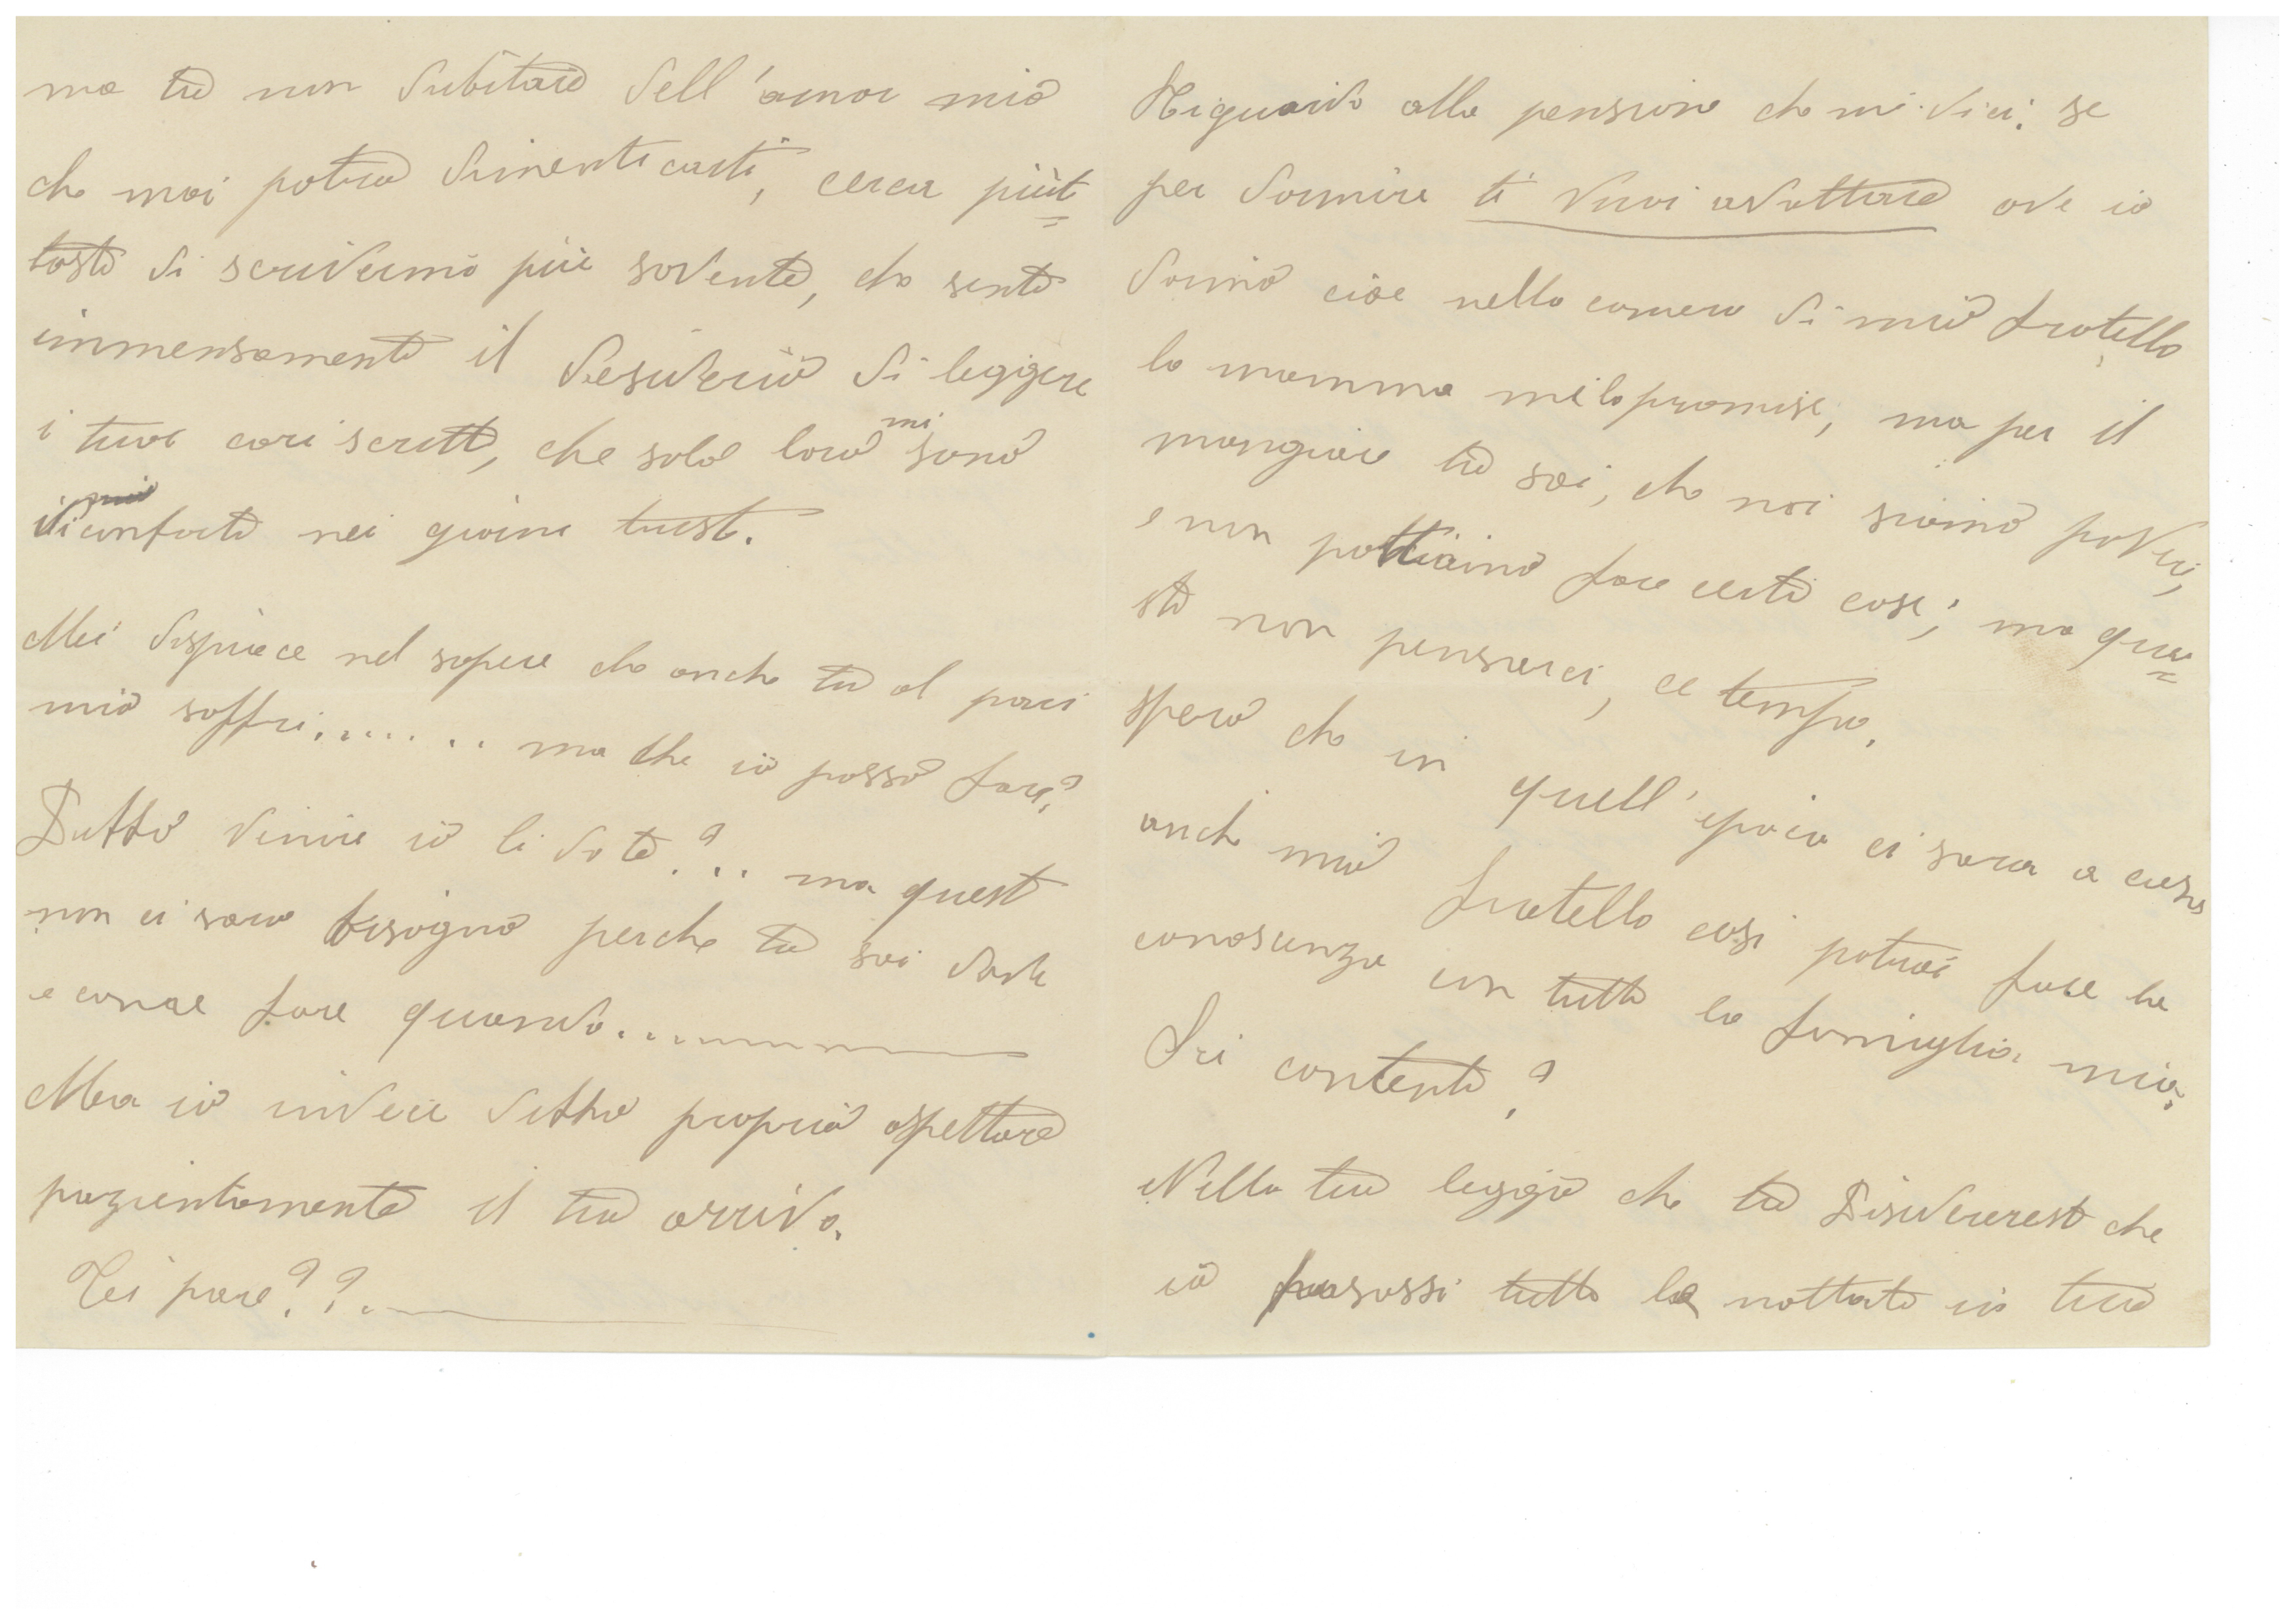 ma tu non dubitare dell'amor mio
che mai potrò dimenticarti, cerca piut=
tosto di scrivermi più sovente, che sento
immensamente il desiderio di leggere
i tuoi cari scritti, che solo loro mi sono
di conforto nei giorni tristi.
Mi dispiace nel sapere che anche tu al pari
mio soffri........ ma che io posso fare?
Debbo venire io li da te?.. ma questo
non ci sarà bisogno perche tu sai
e come fare quando..........
Ma io invece debbo proprio aspettare
pazientemente il tuo arrivo.
Ti pare??.
Riguardo alla pensione che mi dici: se
per dormire ti vuoi adattare ove io
dormo cioe nella camera di mio fratello
la mamma me lo promise, ma per il
mangiare tu sai, che noi siamo poveri,
e non possiamo fare certe cose; ma que=
sto non pensarci, ce tempo.
Spero che in quell'epoca ci sarà a casa
anche mio fratello cosi potrai fare la
conoscenza con tutta la famiglia mia.
Sei contento?
Nella tua leggo che tu desidereresti che
io passassi tutta la nottata in tua